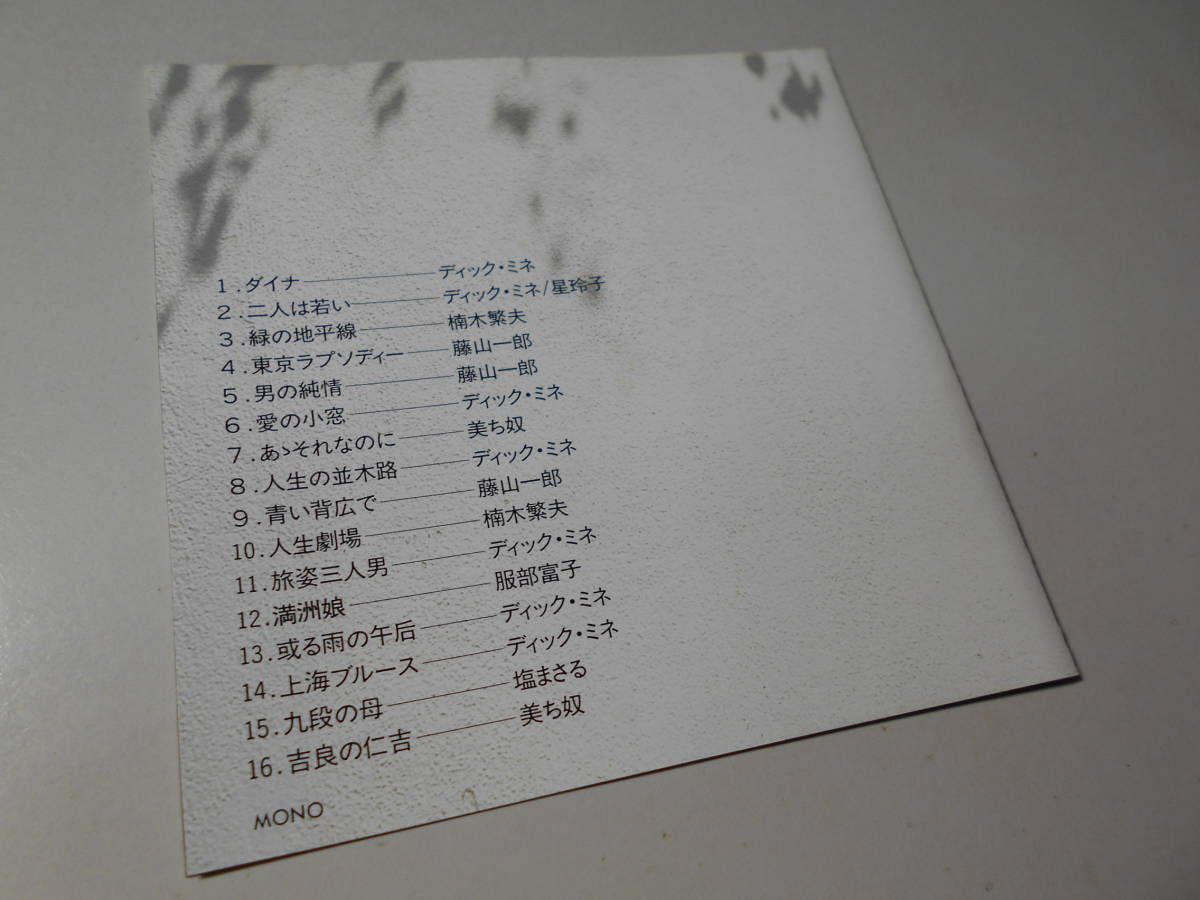 1.ダイナ――ディック・ミネ
2.二人は若い――ディック・ミネ/星玲子
3.緑の地平線――楠木繁夫
4.東京ラプソディー――藤山一郎
5.男の純情――藤山一郎
6.愛の小窓――ディック・ミネ
7.あゝそれなのに――美ち奴
8.人生の並木路――ディック・ミネ
9.青い背広で――藤山一郎
10.人生劇場――楠木繁夫
11.旅姿三人男――ディック・ミネ
12.満洲娘――服部富子
13.或る雨の午后――ディック・ミネ
14.上海ブルース――ディック・ミネ
15.九段の母――塩まさる
16.吉良の仁吉――美ち奴
MONO